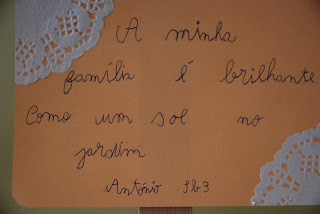 A minha
família é brilhante
Como um sol no
jardim
António 9b3